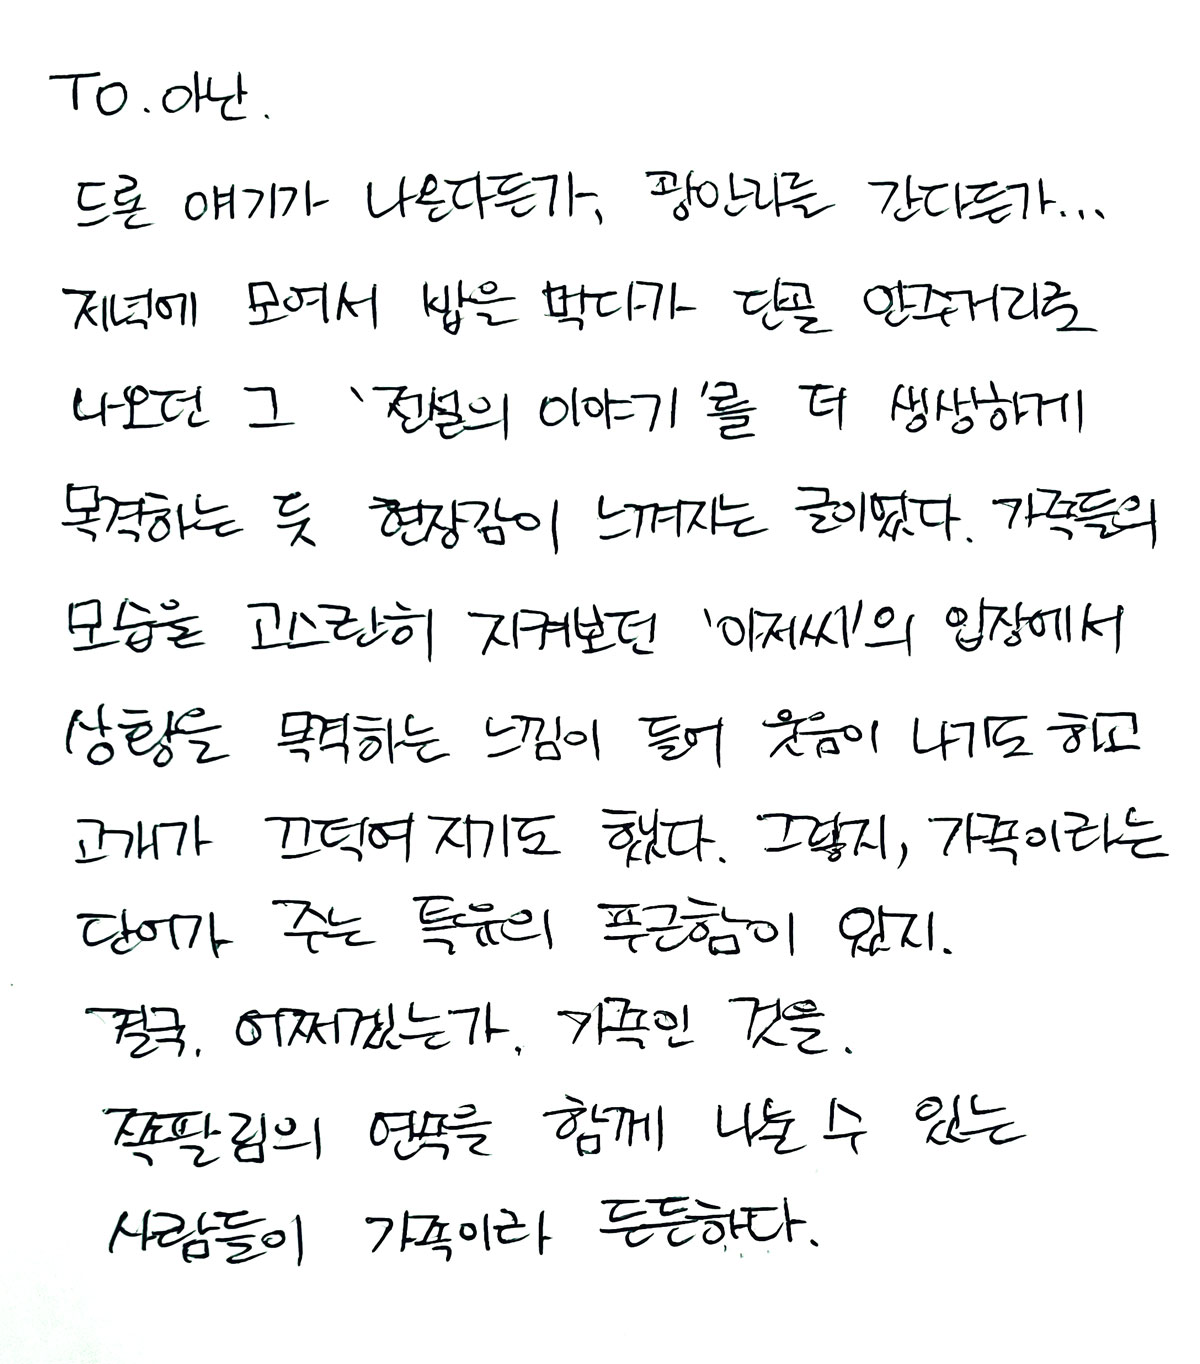 TO. 아난.
드론 얘기가 나온다든가, 광안리를 간다든가...
저녁에 모여서 밥은 먹다가 단골 안주거리로
나오던 그 '전설의 이야기'를 더 생생하게
목격하는 듯 현장감이 느껴지는 글이었다. 가족들의
모습을 고스란히 지켜보던 '아저씨'의 입장에서
상황을 목격하는 느낌이 들어 웃음이 나기도 하고
고개가 끄덕여지기도 했다. 그렇지, 가족이라는
단어가 주는 특유의 푸근함이 있지.
결국, 어쩌겠는가. 가족인 것을.
쪽팔림의 연쪽을 함께 나눌 수 있는
사람들이 가족이라 든든하다.